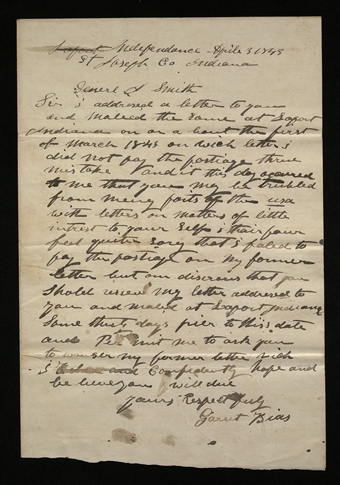 Laport Independance Aprile 3 1843
St Joseph Co Indiana
Generl J Smith
Sir I addresed a letter to you
and maled the same at Laport
Indiana on or a bout the first
of March 1843 on wich letter I
did not pay the postage threw
mistake and it this day occured
to me that you may be trubled
from meny parts of the usa
with letters on matters of little
intrest to your Self I thairfour
feel quite Sory that I faled to
pay the postige on my former
letter but am discrous that you
Shold receve my letter addressed to
you and maled at Laport Indiana
Some thirty days prier to this date
and Permit me to ask you
to answer my former letter wich
I and Confidently hope and
be leve you will due
yours Respectfuly
Garret Bias